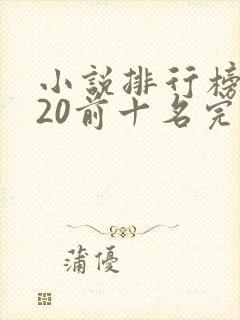 小說排行榜
20前十名完
蒲優